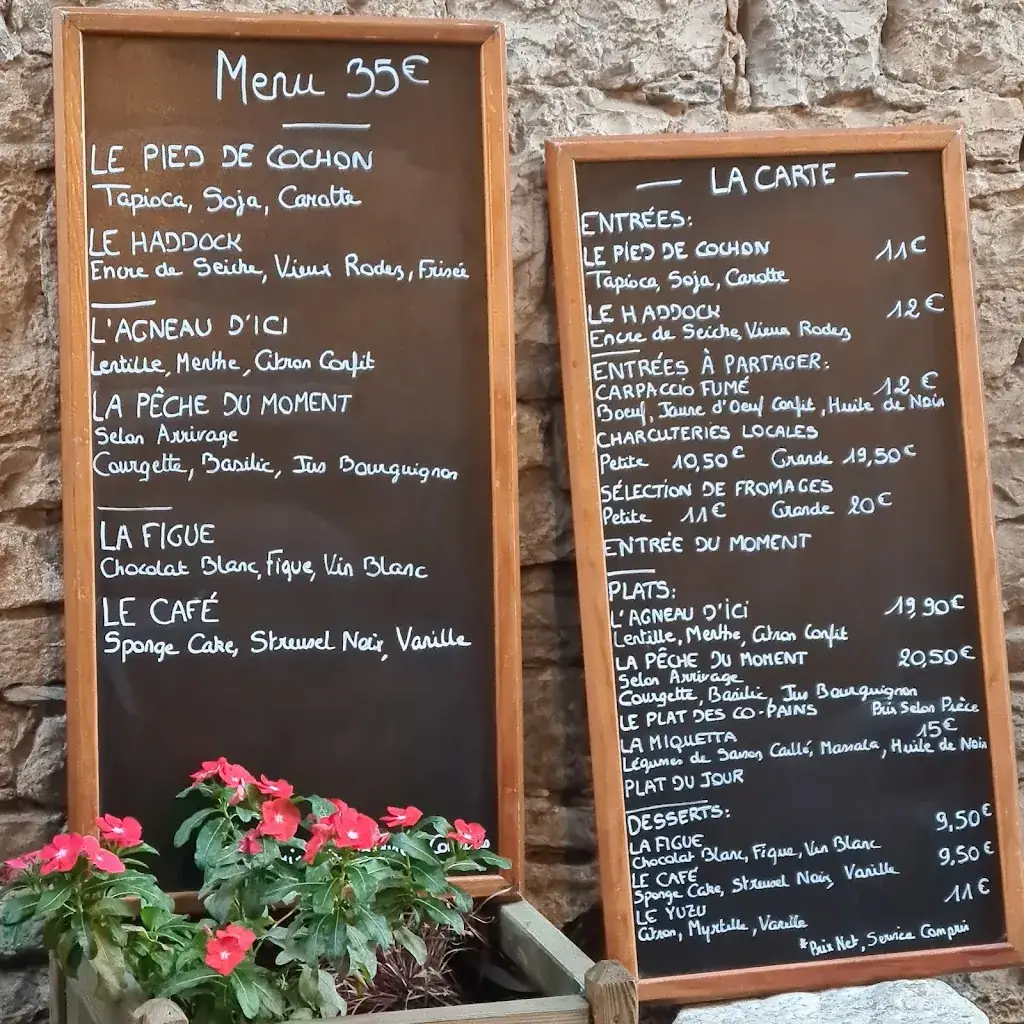 Menu 35€
LE PIED DE COCHON
Tapioca, Soja, Carotte
LE HADDOCK
Encre de Seiche, Vieux Rodez, Frisée
L'AGNEAU D'ICI
Lentille, Menthe, Citron Confit
LA PÊCHE DU MOMENT
Selon Arrivage
Courgette, Basilic, Jus Bourguignon
LA FIGUE
Chocolat Blanc, Figue, Vin Blanc
LE CAFÉ
Sponge Cake, Streusel Noix, Vanille
LA CARTE
ENTRÉES:
LE PIED DE COCHON 11€
Tapioca, Soja, Carotte
LE HADDOCK 12€
Encre de Seiche, Vieux Rodez
ENTRÉES À PARTAGER:
CARPACCIO FUMÉ 12€
Boeuf, Jaune d'Oeuf Confit, Huile de Noix
CHARCUTERIES LOCALES
Petite 10,50€ Grande 19,50€
SÉLECTION DE FROMAGES
Petite 11€ Grande 20€
ENTRÉE DU MOMENT
PLATS:
L'AGNEAU D'ICI 19,90€
Lentille, Menthe, Citron Confit
LA PÊCHE DU MOMENT 20,50€
Selon Arrivage
Courgette, Basilic, Jus Bourguignon
LE PLAT DES CO-PAINS Prix Selon Pièce
LA MIQUETTA 15€
Légumes de Saison, Caillé, Massala, Huile de Noix
PLAT DU JOUR
DESSERTS:
LA FIGUE 9,50€
Chocolat Blanc, Figue, Vin Blanc
LE CAFÉ 9,50€
Sponge Cake, Streusel Noix, Vanille
LE YUZU 11€
Citron, Myrtille, Vanille
*Prix Net, Service Compris